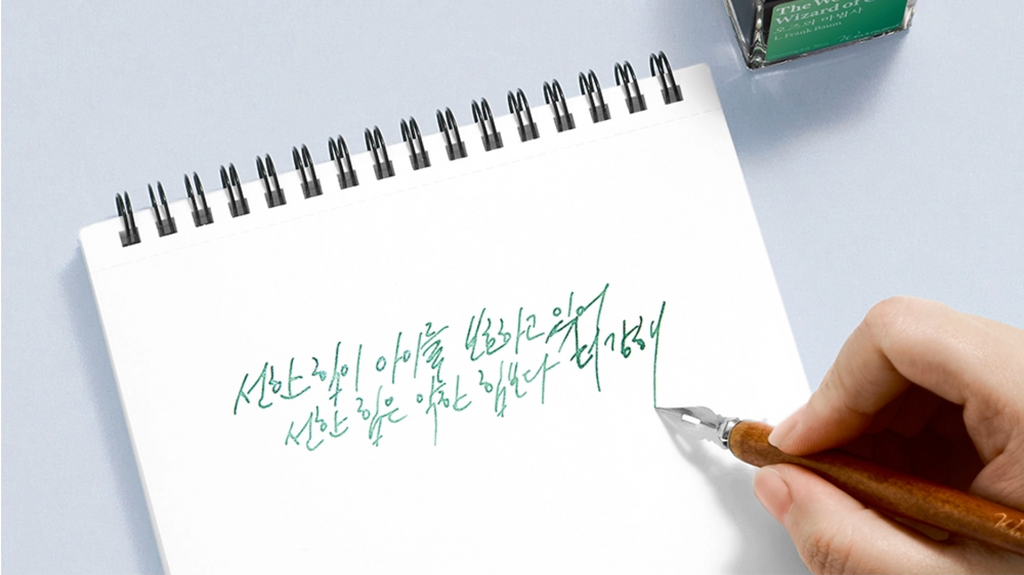 The W
Wizard of
오즈의 마법사
L. Frank Baum
선한 힘이 아이를 보호하고 있어
선한 힘은 악한 힘보다 더 강해